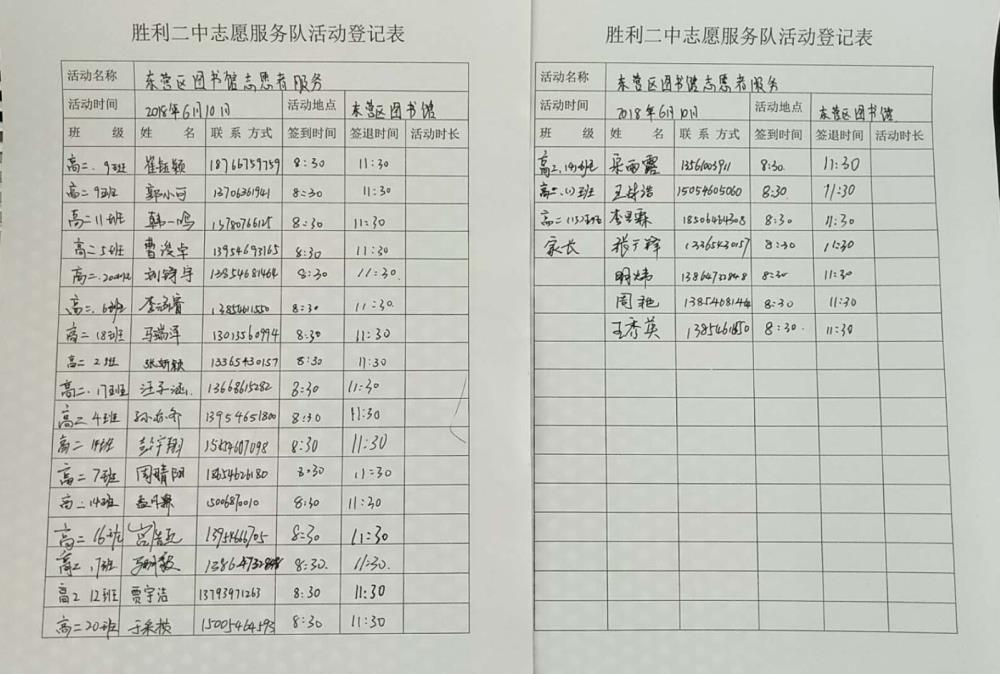 胜利二中志愿服务队活动登记表
活动名称 东营区图书馆志愿者服务
活动时间 2018年6月10日 活动地点 东营区图书馆
班 级 姓 名 联系方式 签到时间 签退时间 活动时长
高二.9班 18766759759 8:30 11:30
高二9班 郭小可 13706361941 8:30 11:30
高二11班 韩一鸣 8:30 11:30
高二5班 曹浚宇 13954693165 8:30 11:30
高二. 13854681464 8:30 11:30
高二.6班 李涵睿 13854611550 8:30 11:30
高二18班 马瑞泽 13013560994 8:30 11:30
高二2班 张妍颖 13365430157 8:30 11:30
高二.17班 汪子涵 13668615282 8:30 11:30
高二4班 13954651800 8:30 11:30
高二 彭宇翔 15854607098 8:30 11:30
高二7班 周晴阳 18654626180 8:30 11:30
高二.14班 8:30 11:30
高二16班 8:30 11:30
高二.17班 8:30. 11:30.
高2 12班 贾宇洁 13793971263 8:30 11:30
高二20班 于采桢 15005464593 8:30 11:30
胜利二中志愿服务队活动登记表
活动名称 东营区图书馆志愿者服务
活动时间 2018年6月10日 活动地点 东营区图书馆
班 级 姓 名 联系方式 签到时间 签退时间 活动时长
高二. 宋雨露 8:30. 11:30
高二. 15054605060 8:30 11:30
高二 李思霖 18506464308 8:30 11:30
家长 8:30 11:30
明炜 8:30 11:30
周艳 8:30 11:30
王秀英 8:30. 11:30